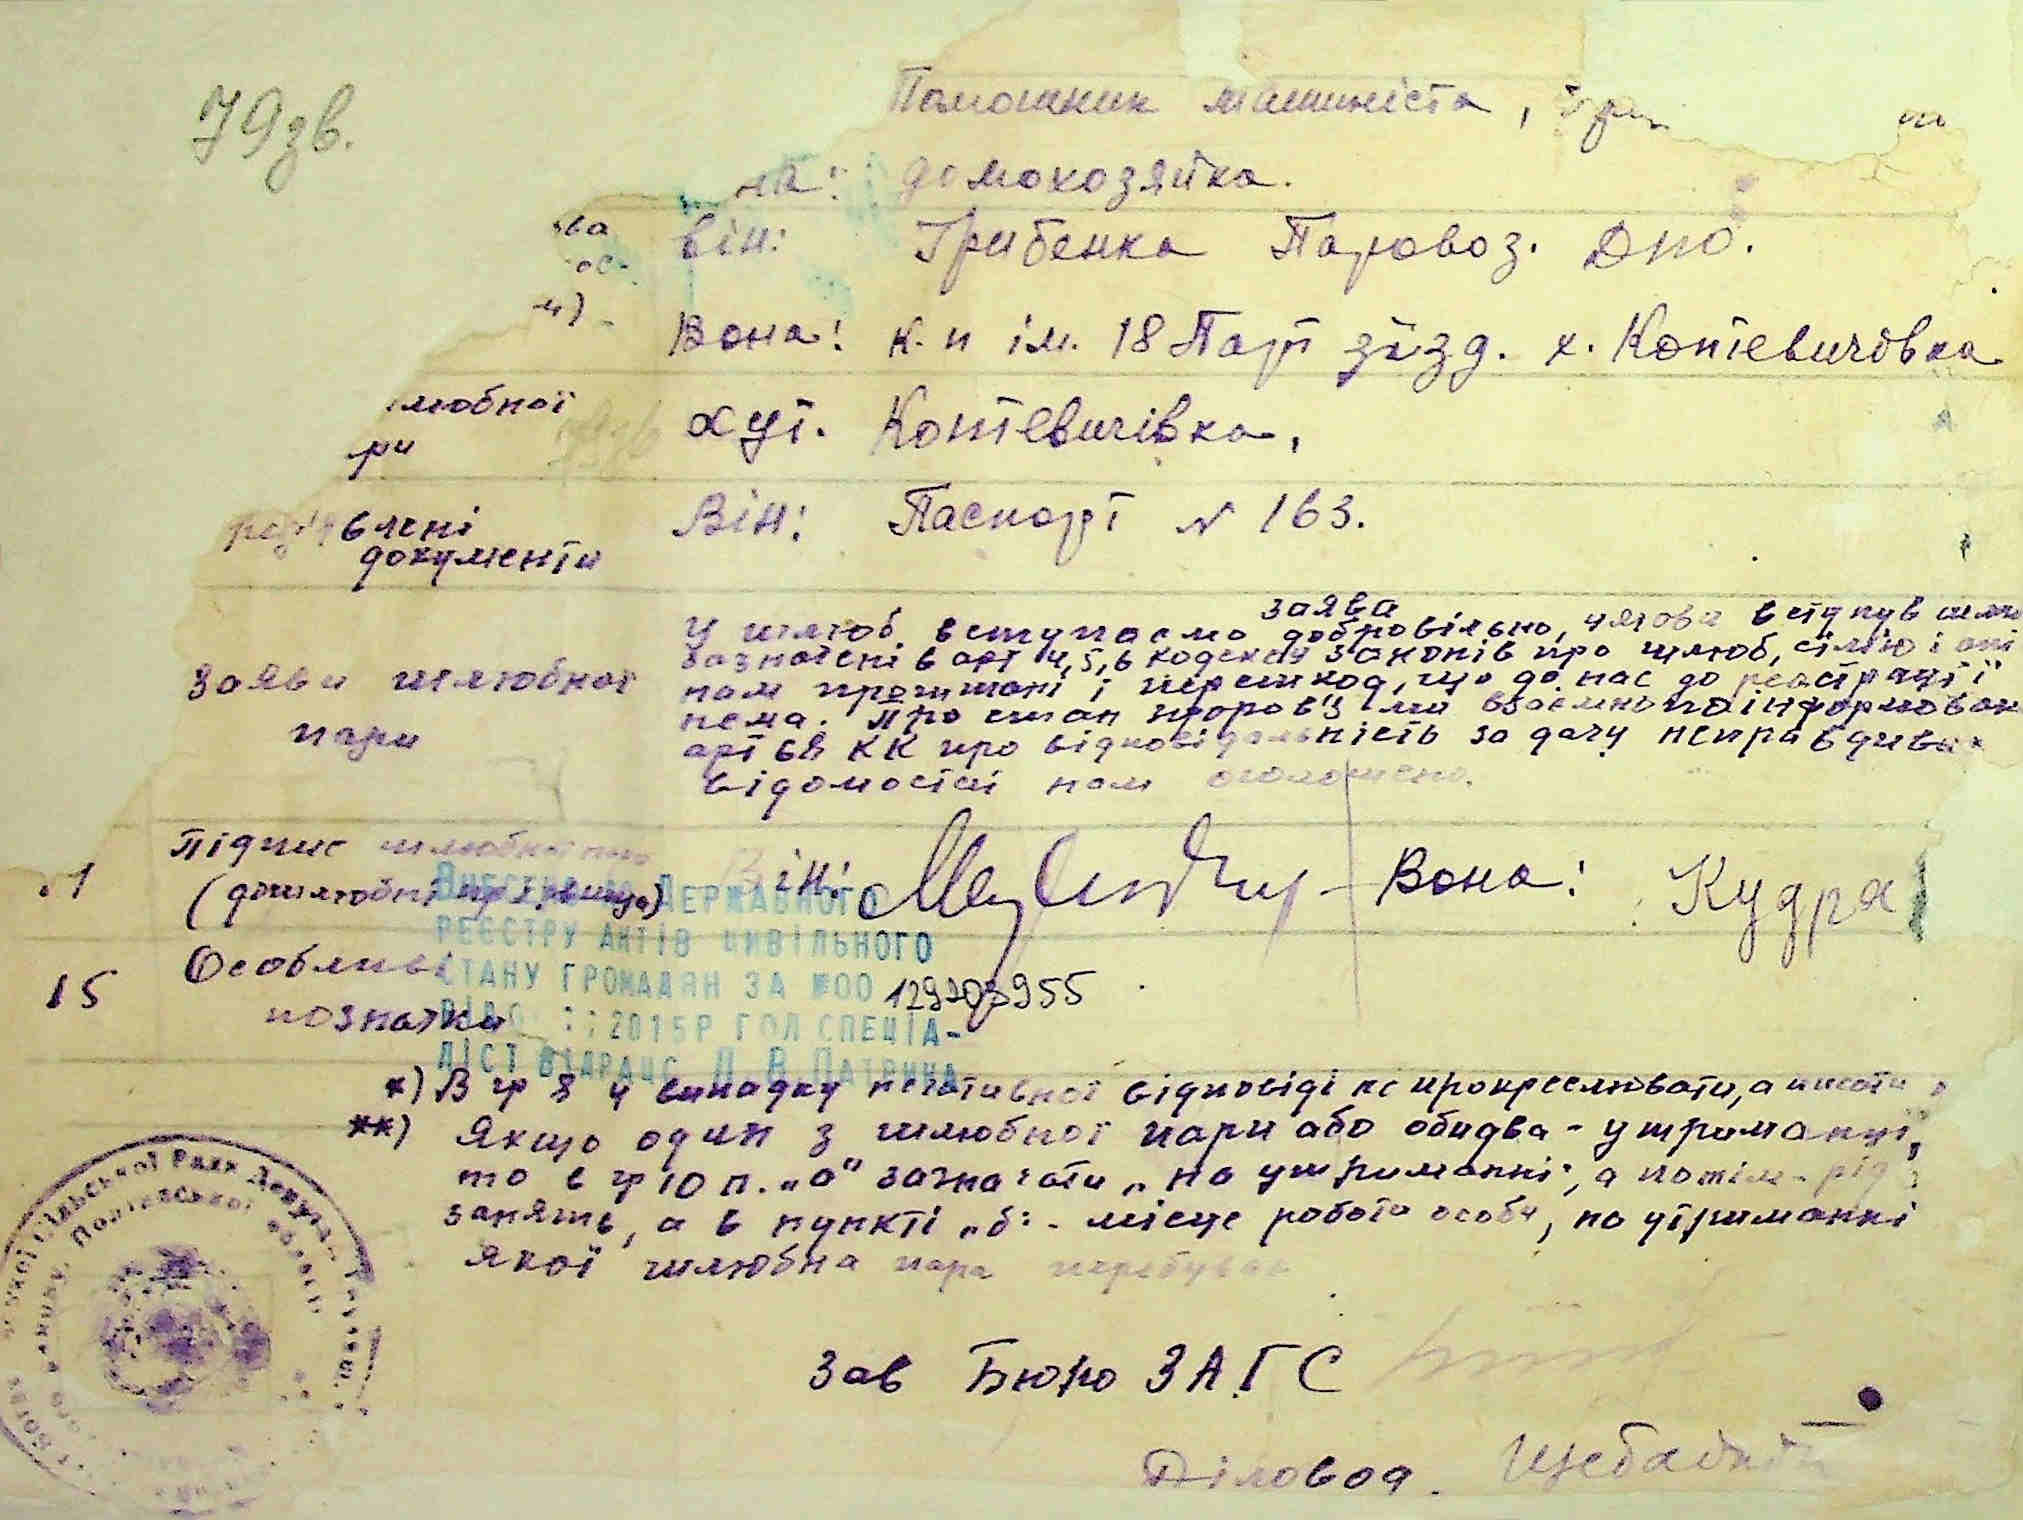 79зв.
Помошник машиніста,
на: домохозяйка.
ва Він: Грибенка Паровоз. Дпо.
ос.
и)
Вона: к-п ім. 18 Парт зїзд. х. Котевичівка
любної хут. Котевичівка,
ри
влені Він: Паспорт N 163.
документи
заява
У шлюб вступаємо добровільно, умови вступу в шлю
зазначені в арт 4,5,6 кодексу законів про шлюб, сімю і опі
Заяви шлюбної нам прочитані і перешкод, що до нас до реєстрації
нема. Про стан здоров'я ми взаємно поінформован
пари арт 68 КК про відповідальність за дачу неправдивих
відомостей нам оголошено.
Підпис шлюбної пари Він: Вона: Кудря
(дошлюбні прізвища)
15 Особливі
познатки
Внестро до Державного
реєстру актів цивільного
стану громадян за №00 129203955
2015р гол спеціа-
ліст відрацс Л В Патрина
*) В гр 8 у випадку негативної відповіді не прокреслювати, а писати
**) Якщо один з шлюбної пари або обидва - утриманці,
то в гр 10 п. „а" зазначати „на утриманні", а потім - рід
занять, а в пункті „б" - місце роботи особи, на утриманні
якої шлюбна пара перебуває
Зав Бюро ЗАГС
Діловод.
сільської Ради Депутатів
Полтавської області